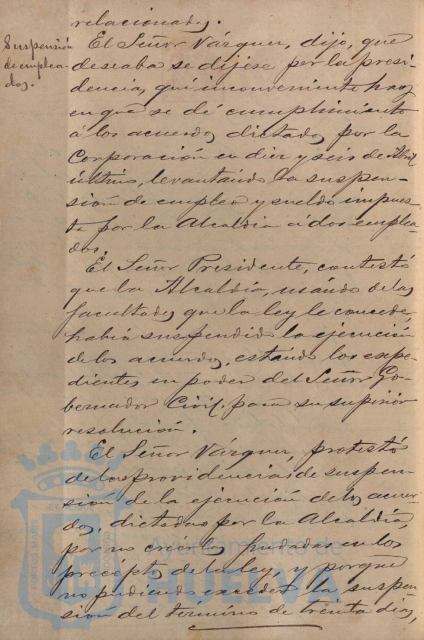 relacionados.
Suspensión
de emplea-
dos.
El Señor Vázquez, dijo, que
deseaba se dijese por la presi-
dencia, qué inconveniente hay
en que se dé cumplimiento
á los acuerdos dictados por la
Corporacion en diez y seis de Abril
último, levantando la suspen-
sión de empleo y sueldo impues-
ta por la Alcaldia á dos emplea-
dos.
El Señor Presidente, contestó
que la Alcaldía, usando de las
facultades que la ley le concede,
había suspendido la ejecución
de los acuerdos, estando los espe-
dientes en poder del Señor Go-
bernador Civil, para su superior
resolución.
El Señor Vázquez, protestó
de las providencias de suspen-
sión de la ejecución de los acuer-
dos, dictadas por la Alcaldía,
por no creerlas fundadas en los
preceptos de la ley, y porque
no pudiendo exceder la suspen-
sión del término de treinta dias,
Ayuntamiento de
HUELVA